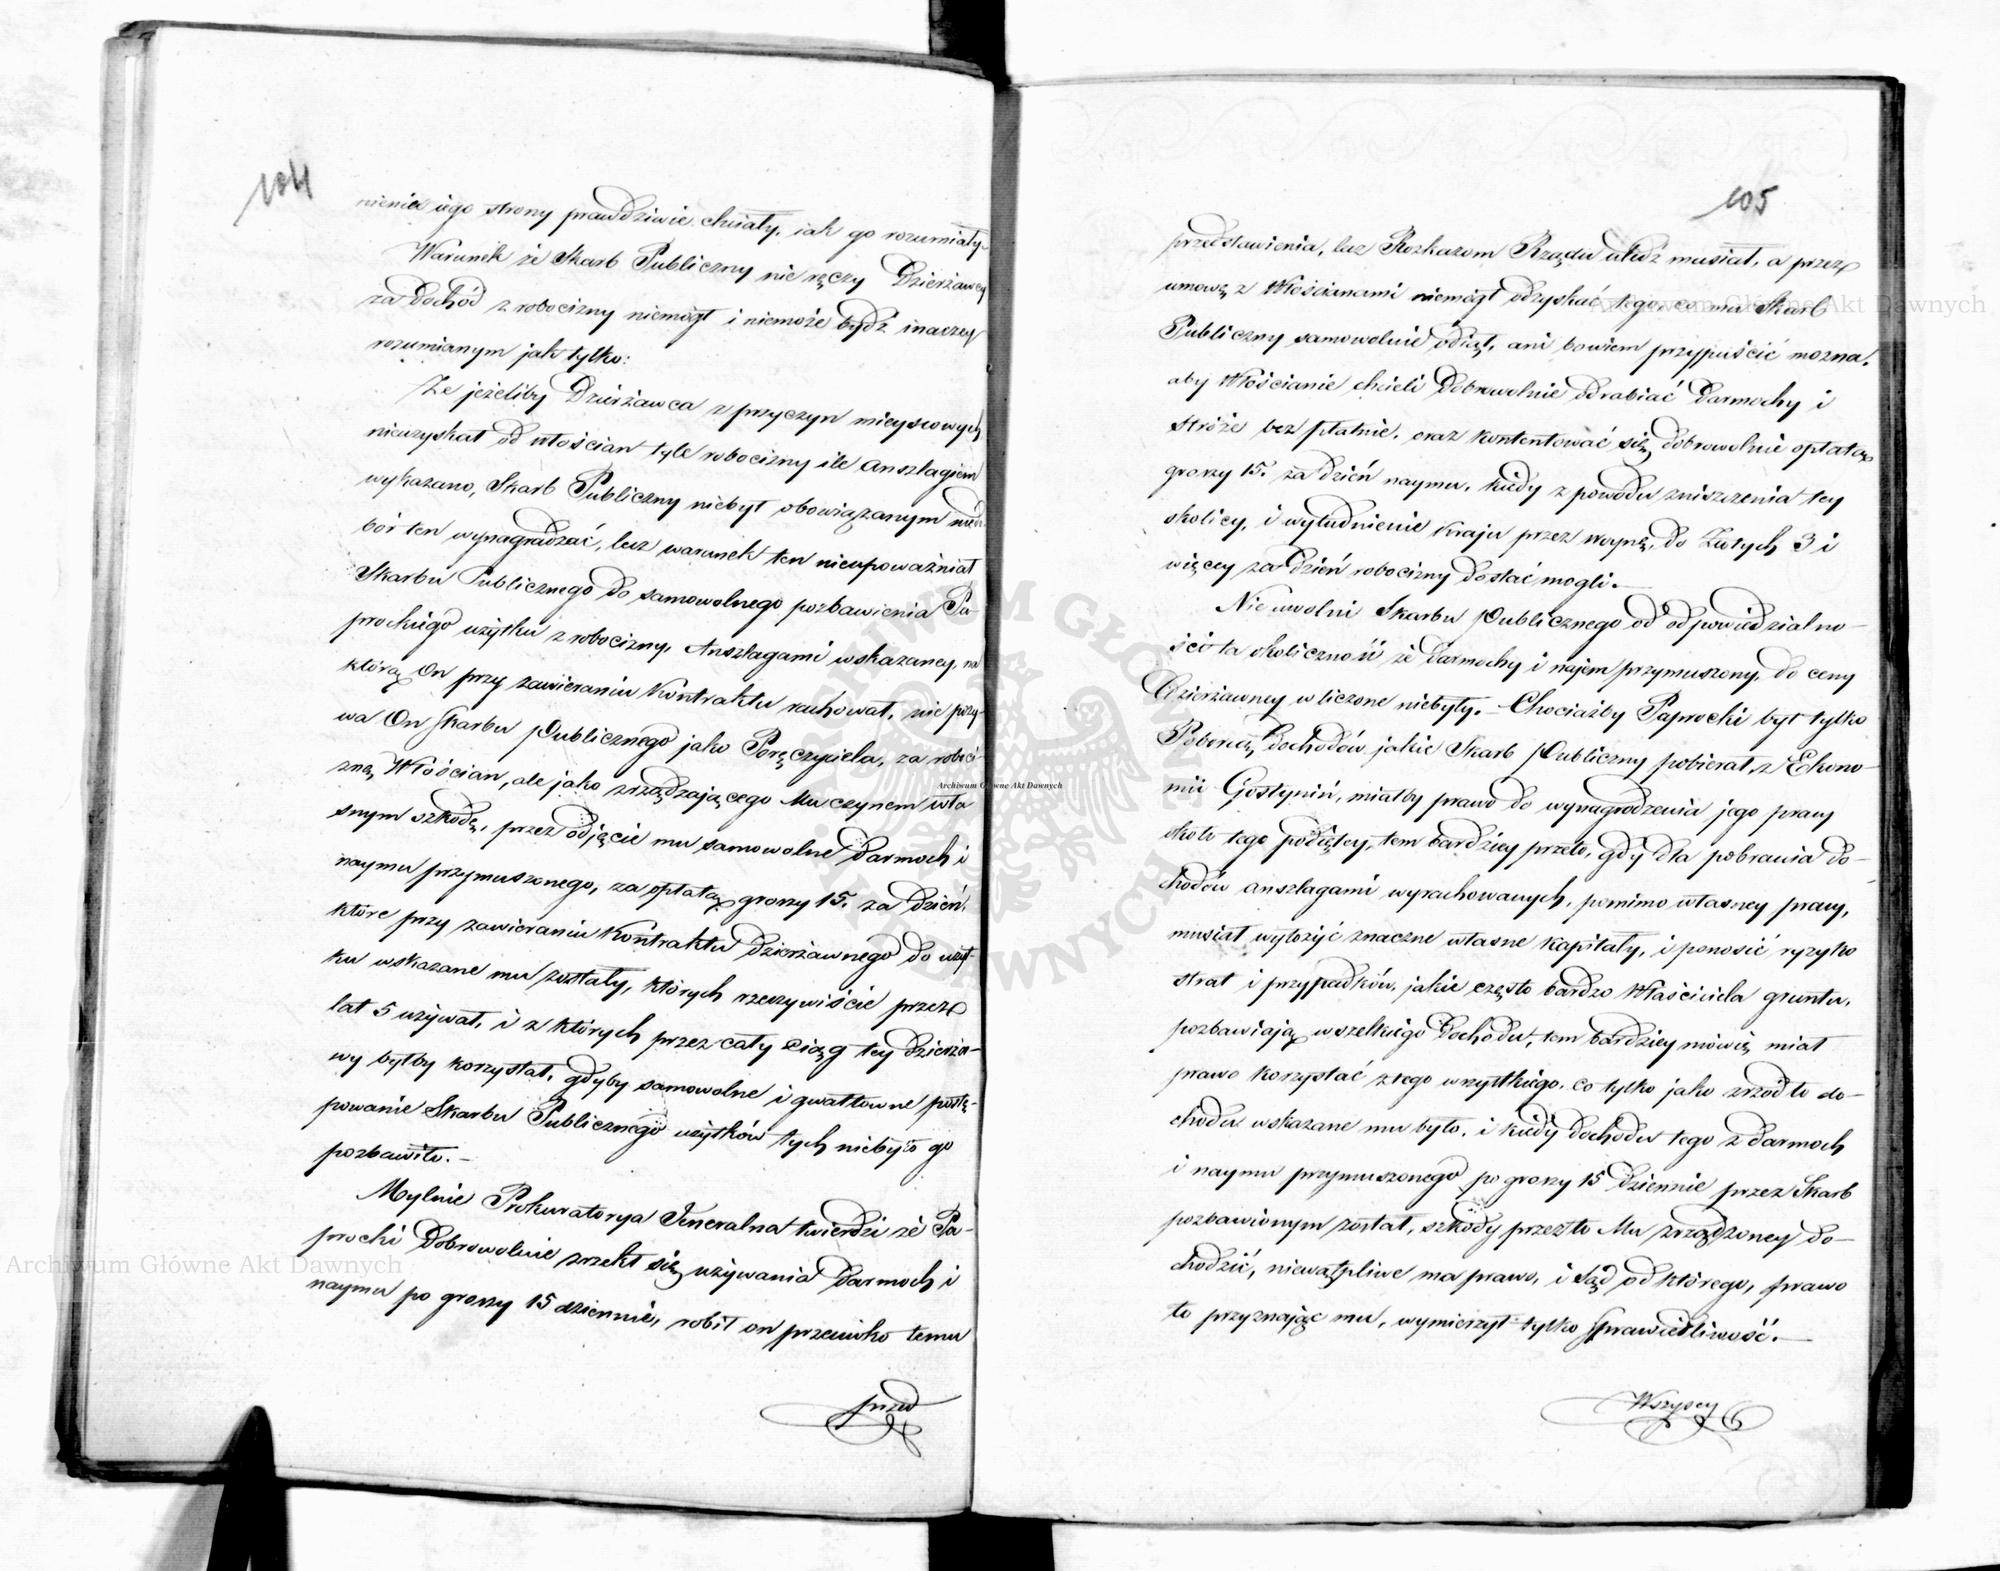 104
nienia iego strony prawdziwie chciały, iak go rozumiały.
Warunek że Skarb Publiczny nie ręczy Dzierżawcy
za dochód z robocizny niemógł i niemoże bydź inaczey
rozumianym jak tylko:
Że jeżeliby Dzierżawca z przyczyn mieyscowych
nieuzyskał od włościan tyle robocizny ile Anszlagiem
wykazano, Skarb Publiczny niebył obowiązanym niedo-
bór ten wynagradzać, lecz warunek ten nieupoważniał
Skarbu Publicznego do samowolnego pozbawienia Pa-
prockiego użytku z robocizny, Anszlagami wskazaney, na
którą On przy zawieraniu Kontraktu rachował, nie pozy-
wa On Skarbu Publicznego jako Poręczyciela, za roboci-
znę Włościan, ale jako zrządzającego Mu czynem wła
snym szkodę, przez odjęcie mu samowolne darmoch i
naymu przymuszonego, za opłatą groszy 15. za dzień,
które przy zawieraniu Kontraktu dzierżawnego do użyt-
ku wskazane mu zostały, których rzeczywiście przez
lat 5 używał, i z których przez cały ciąg tey dzierża-
wy byłby korzystał, gdyby samowolne i gwałtowne postę-
powanie Skarbu Publicznego użytków tych niebyło go
pozbawiło.-
Mylnie Prokuratorya Jeneralna twierdzi że Pa-
procki Dobrowolnie zrzekł się używania darmoch i
naymu po groszy 15 dziennie, robił on przeciwko temu
przed
105
przedstawienia, lecz Rozkazom Rządu uledz musiał, a przez
umowę z Włościanami niemógł odzyskać tego, co mu Skarb
Publiczny samowolnie odjął, ani bowiem przypuścić można,
aby Włościanie chcieli Dobrowolnie odrabiać Darmochy i
stróże bez płatnie, oraz kontentować się dobrowolnie opłatą
groszy 15. za dzień naymu, kiedy z powodu zniszczenia tey
okolicy, i wyludnienie Kraju przez woynę, do Złotych 3 i
więcey za dzień robocizny dostać mogli.-
Nie uwolni Skarbu Publicznego od odpowiedzialno-
ści ta okoliczność że darmochy i najem przymuszony, do ceny
Dzierżawney wliczone niebyły.- Chociażby Paprocki był tylko
Poborcą dochodów jakie Skarb Publiczny pobierał z Ekono-
mii Gostynin, miałby prawo do wynagrodzenia jego pracy
około tego podjętey, tem bardziey przeto, gdy dla pobrania do-
chodów anszlagami wyrachowanych, pomimo własney pracy,
musiał wyłożyć znaczne własne kapitały, i ponosić ryzyko
strat i przypadków, jakie często bardzo Właściciela gruntu,
pozbawiają wszelkiego Dochodu, tem bardziey mówię miał
prawo korzystać z tego wszystkiego, co tylko jako zrzódło do-
chodu wskazane mu było, i kiedy dochodu tego z darmoch
i naymu przymuszonego po groszy 15 dziennie przez Skarb
pozbawionym został, szkody przez to Mu zrządzoney do-
chodzić, niewątpliwe ma prawo, i Sąd od którego, prawo
to przyznając mu, wymierzył tylko sprawiedliwość.-
Wszyscy
Archiwum Główne Akt Dawnych
Archiwum Główne Akt Dawnych
Archiwum Główne Akt Dawnych
ARCHIWUM GŁÓWNE AKT DAWNYCH